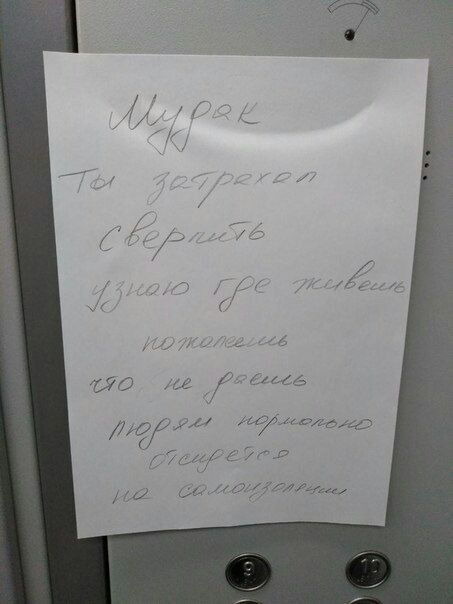 Мудак
Ты затрахал
сверлить
узнаю где живешь
пожалеешь
что не даешь
людям нормально
отсидется
на самоизоляции
9
10